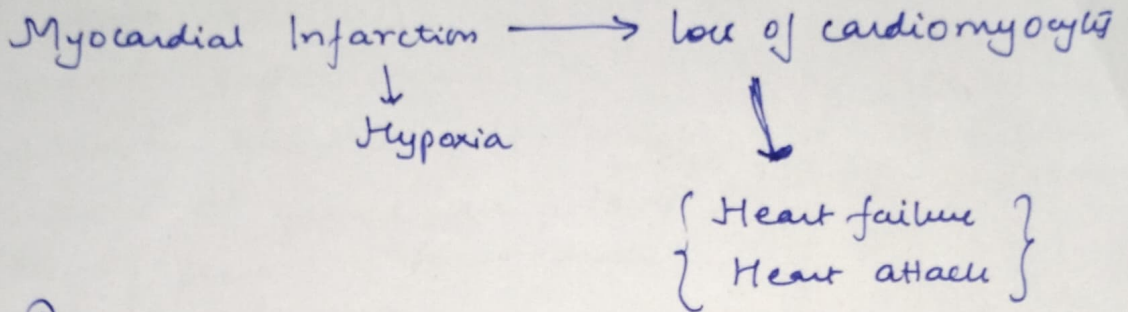 Myocardial Infarction → Loss of cardiomyocytes
↓
Hypoxia
↓
{ Heart failure }
{ Heart attack }